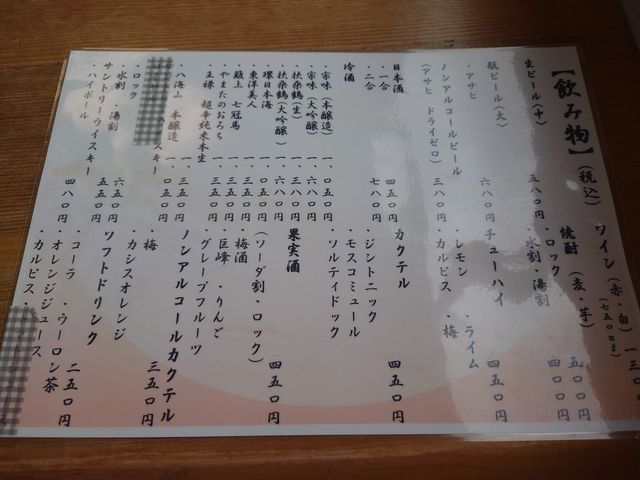 【飲み物】(税込)
生ビール(中) 五八〇円
瓶ビール(大)
・アサヒ 六八〇円
ノンアルコールビール
(アサヒ ドライゼロ) 三八〇円
日本酒
・一合 四五〇円
・二合 七八〇円
冷酒
・宗味(本醸造) 一、〇五〇円
・宗味(大吟醸) 一、六八〇円
・扶桑鶴(生)
・扶桑鶴(大吟醸) 一、六八〇円
・環日本海 一、〇五〇円
・東洋美人 一、三五〇円
・簸上 七冠馬 一、三五〇円
・やまたのおろち
・王祿 超辛純米本生 一、三五〇円
・八海山 本醸造 一、〇五〇円
スキー
・ロック
・水割 ・湯割 六五〇円
サントリーウイスキー 五五〇円
・ハイボール 四八〇円
ワイン(赤・白)
(七五〇ml)
焼酎(麦・芋)
・ロック 五五〇円
・水割 ・湯割
チューハイ 四五〇円
・レモン ・ライム
・カルピス ・梅
カクテル 四五〇円
・ジントニック
・モスコミュール
・ソルティドック
果実酒
(ソーダ割・ロック) 四五〇円
・梅酒
・巨峰 ・りんご
・グレープフルーツ
ノンアルコールカクテル 三五〇円
・梅
・カシスオレンジ
ソフトドリンク 二五〇円
・コーラ ・ウーロン茶
・オレンジジュース
・カルピス